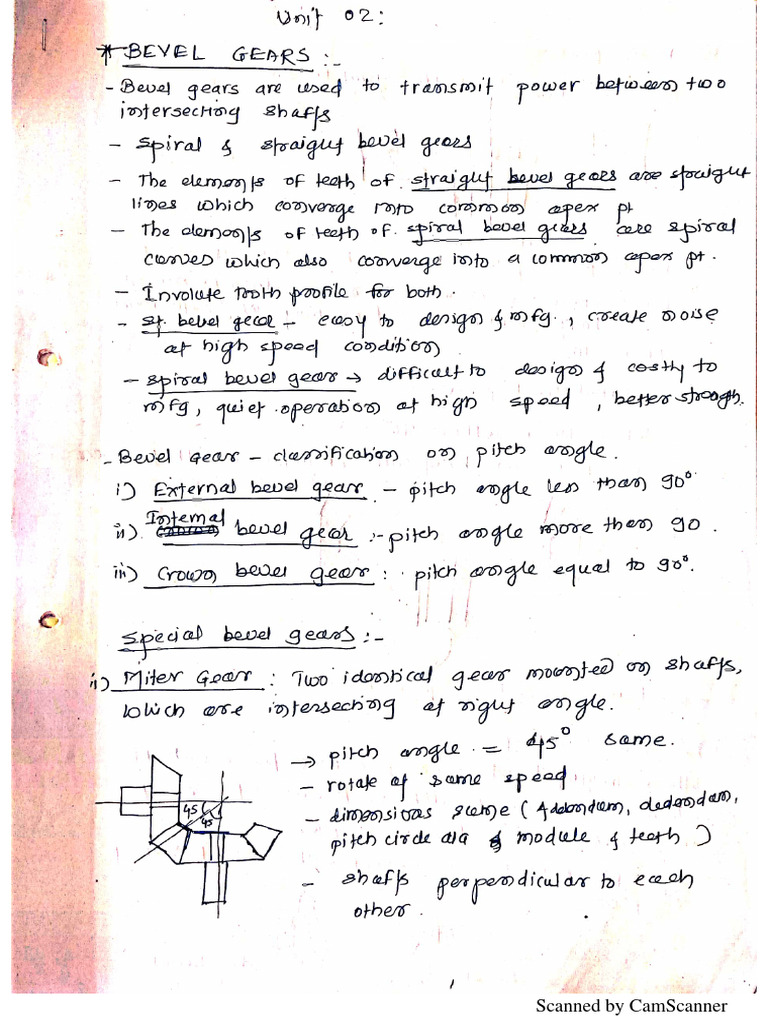 Unit 02:
* BEVEL GEARS :-
- Bevel gears are used to transmit power between two
intersecting shafts
- spiral & straight bevel gears
- The elements of teeth of straight bevel gears are straight
lines which converge into common apex pt
- The elements of teeth of spiral bevel gears are spiral
curves which also converge into a common apex pt.
- Involute tooth profile for both.
- st. bevel gear - easy to design & mfg., create noise
at high speed condition
- spiral bevel gear → difficult to design & costly to
mfg, quiet operation at high speed, better strength.
- Bevel Gear - classification on pitch angle.
i) External bevel gear - pitch angle less than 90°
ii) Internal bevel gear :- pitch angle more than 90.
iii) Crown bevel gear : pitch angle equal to 90°.
special bevel gears :-
i) Miter Gear : Two identical gear mounted on shafts,
which are intersecting at right angle.
→ pitch angle = 45° same.
- rotate at same speed
- dimensions same (Addendum, dedendum,
pitch circle dia & module & teeth)
- shafts perpendicular to each
other.
45
45
Scanned by CamScanner